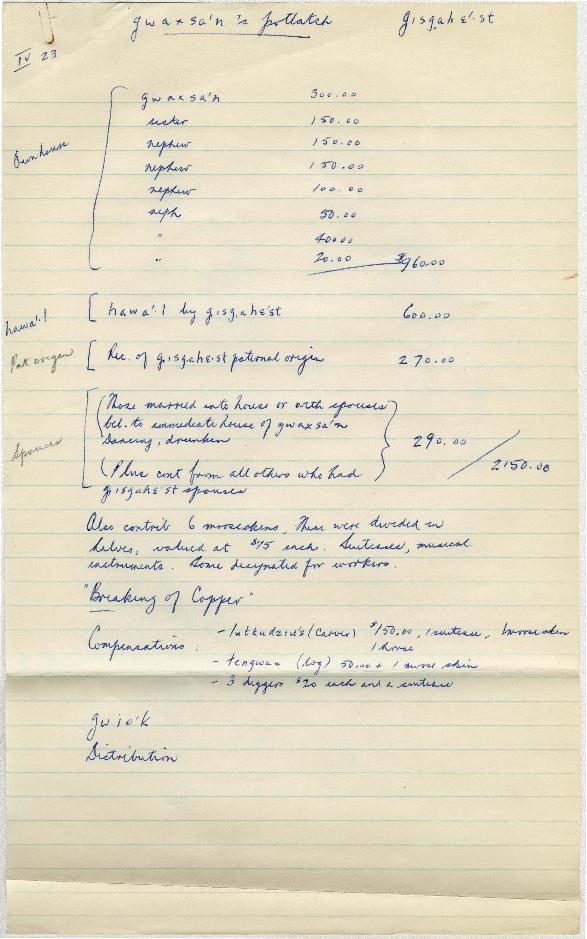 gwaxsa'n's potlatch gisgahe'st
IV 23
Own house
gwaxsa'n 300.00
sister 150.00
nephew 150.00
nephew 150.00
nephew 100.00
neph 50.00
" 40.00
" 20.00 $960.00
hawa'.l [ hawa'.l by gisgahe'st 600.00
Pat origin [ Rec. of gisgahe'st paternal origin 270.00
Spouses
(Those married into house or with spouses
bel. to immediate house of gwaxsa'n
Dancing, drunken 290.00
(Plus cont from all others who had
gisgahe'st spouses
2150.00
Also contrib 6 mooseskins. These were divided in
halves, valued at $15 each. Suitcases, musical
instruments. Some designated for workers.
"Breaking of Copper"
Compensations: - (Carver) $150.00, 1 suitcase, 1 mooseskin
1 horse
- (log) 50.00 + 1 moose skin
- 3 diggers $20 each and a suitcase
gwio'k
Distribution